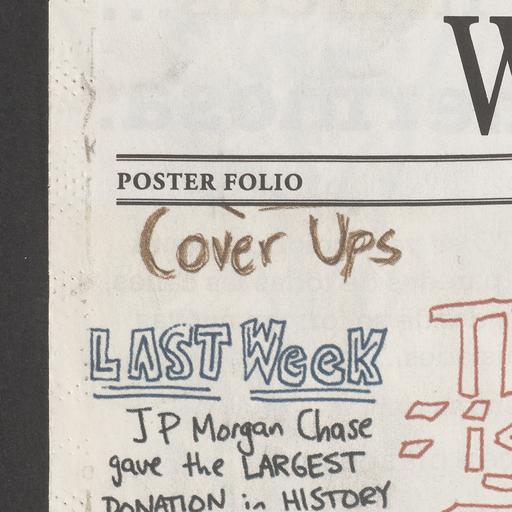 W
POSTER FOLIO
Cover Ups
LAST Week
JP Morgan Chase
gave the LARGEST
DONATION in HISTORY